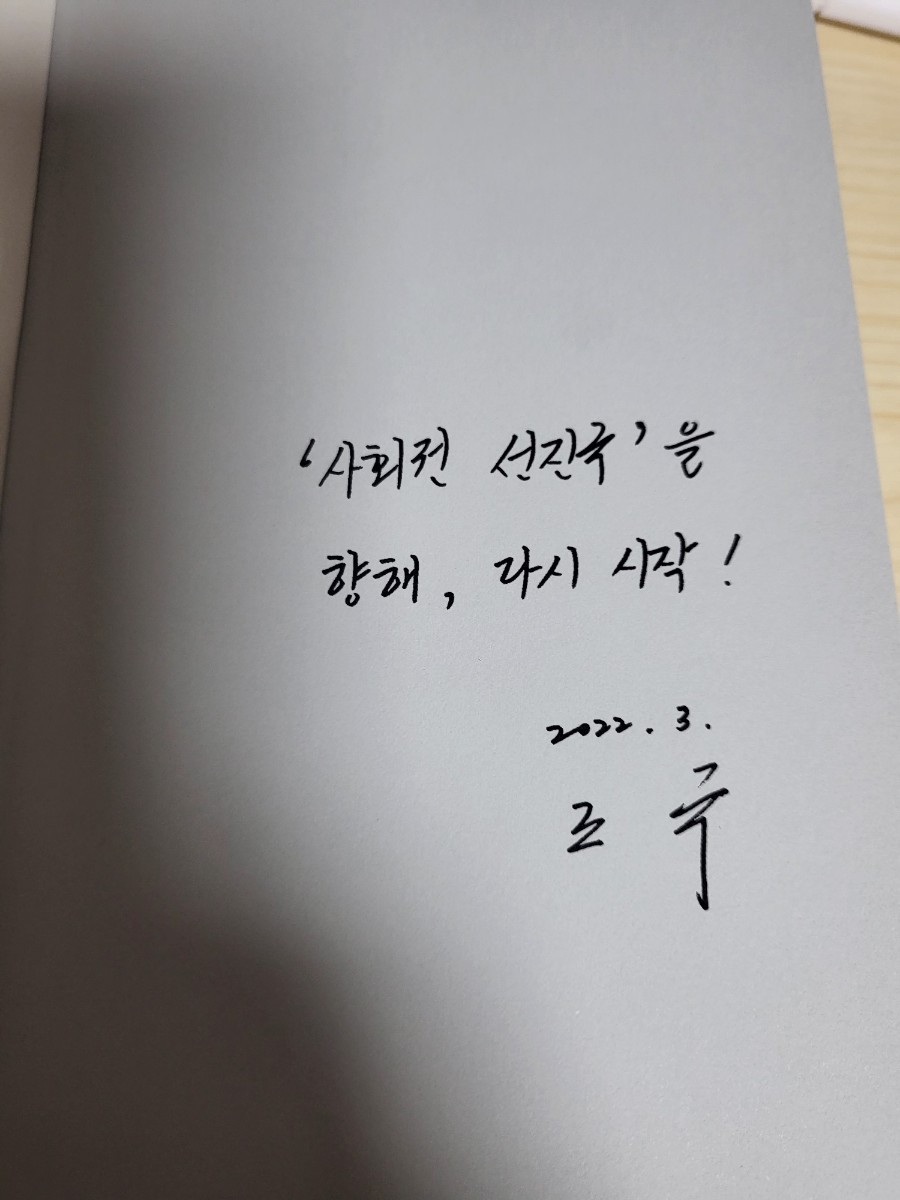 ‘사회권 선진국’을
향해, 다시 시작!
2022. 3.
조 국